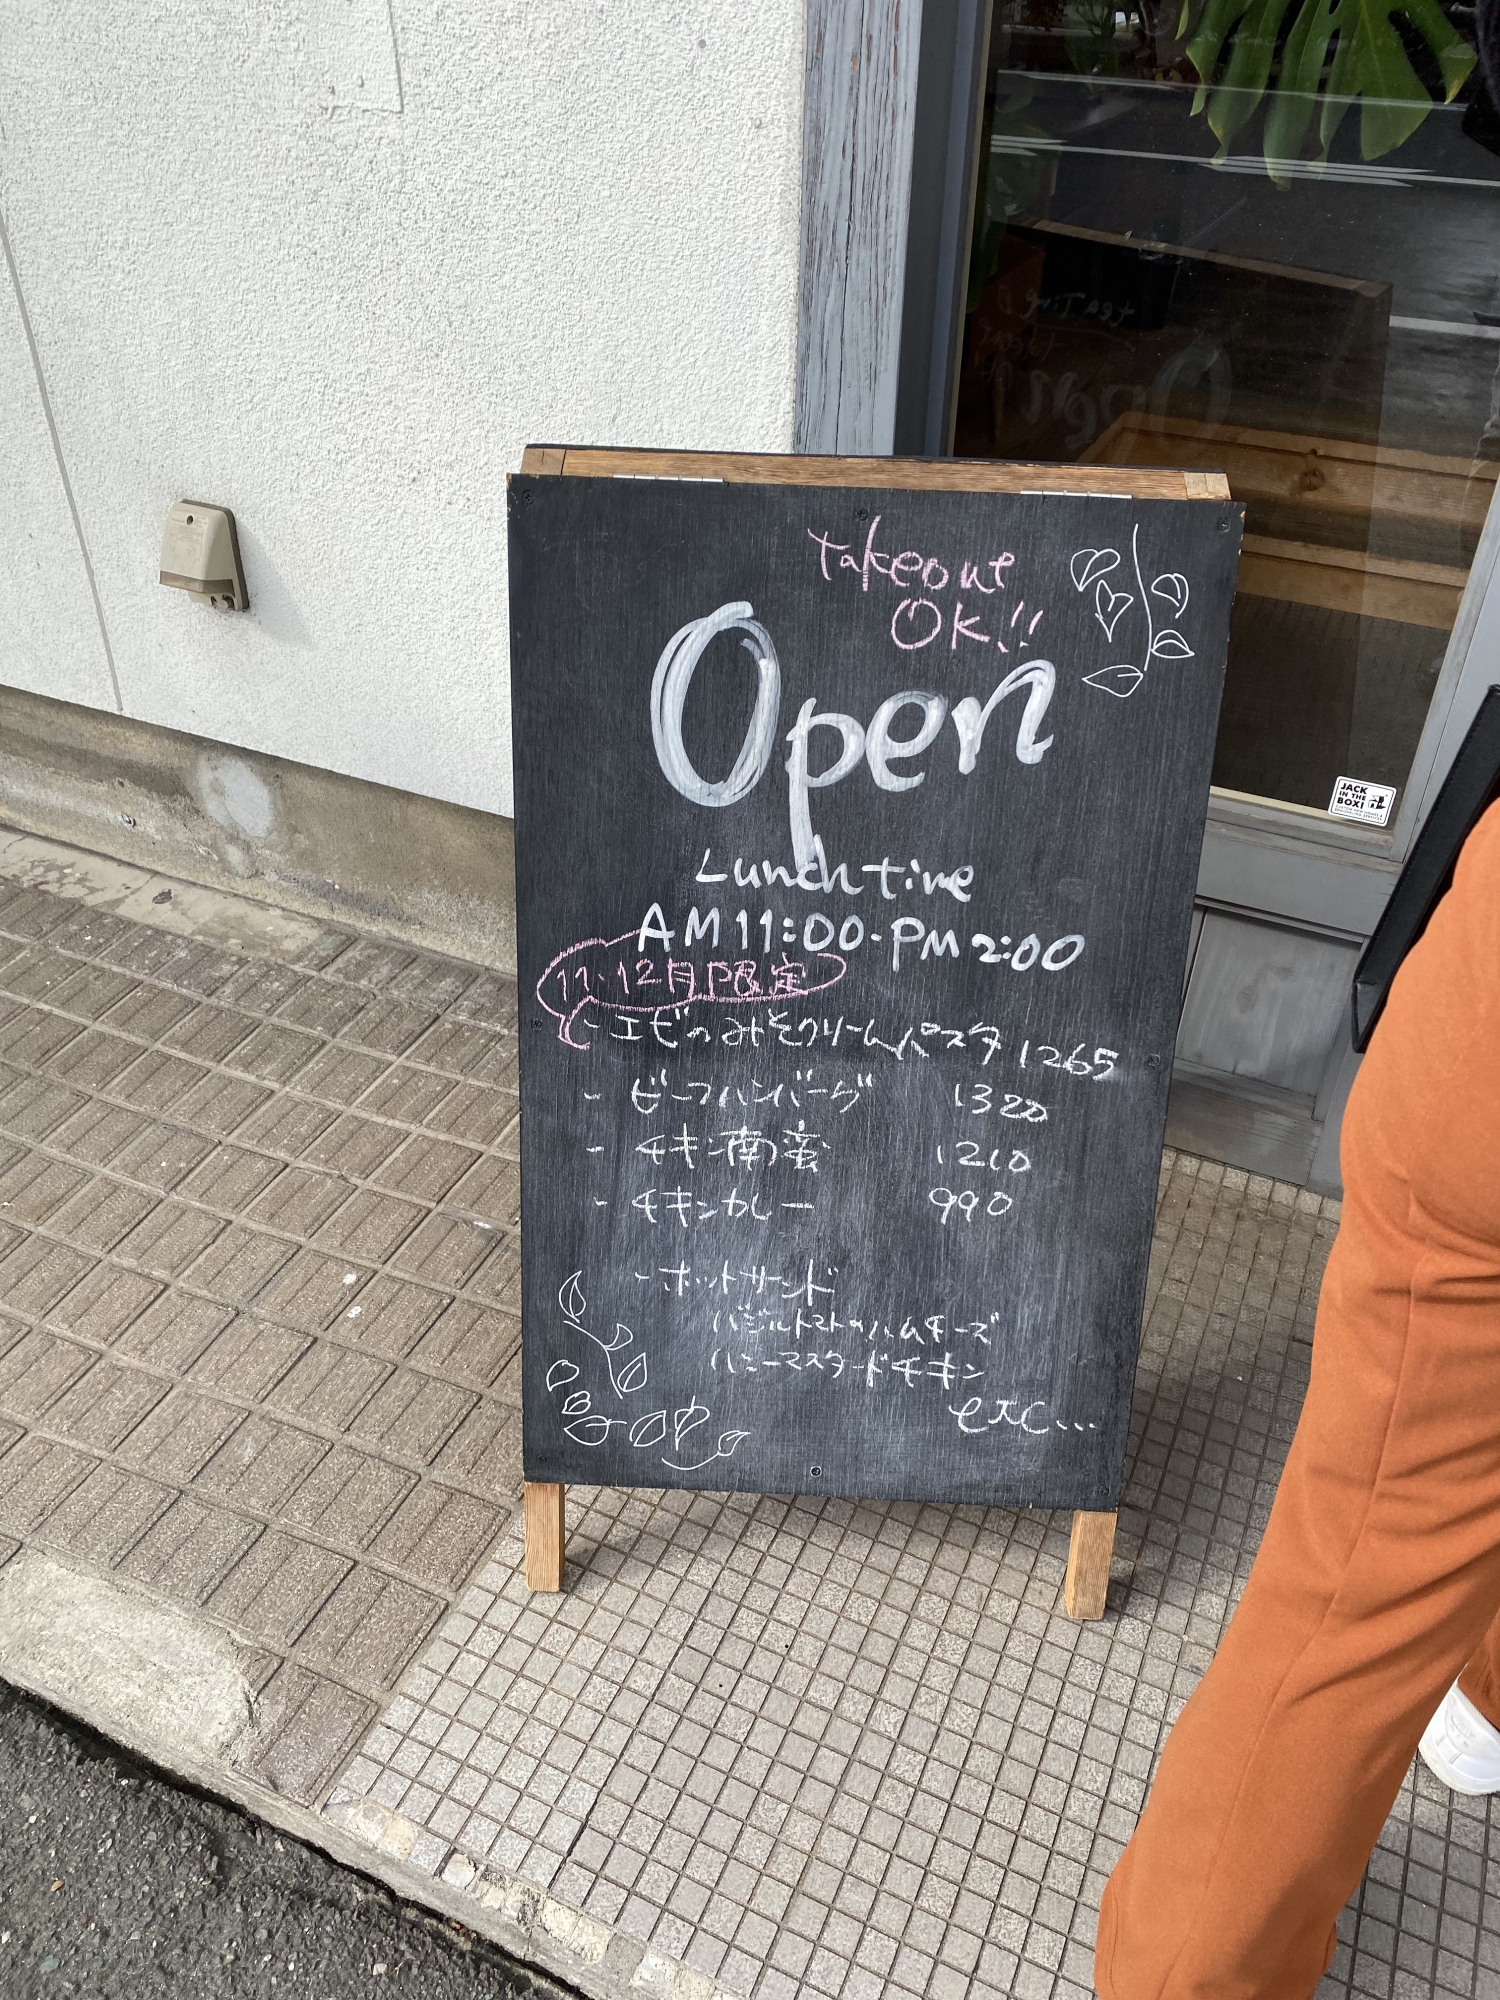 Takeout
OK!!
Open
Lunch time
AM11:00-PM2:00
11・12月限定
- エビのみそクリームパスタ 1265
- ビーフハンバーグ 1320
- チキン南蛮 1210
- チキンカレー 990
- ホットサンド
バジルトマトのハムチーズ
ハニーマスタードチキン
etc...
JACK
IN THE
BOX!